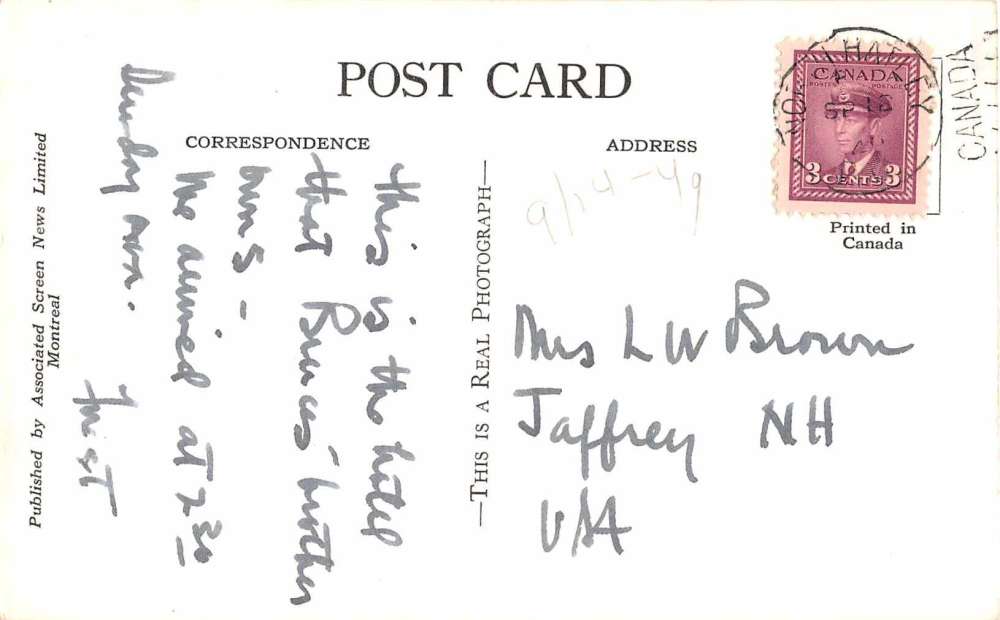 POST CARD
CORRESPONDENCE
ADDRESS
This is the hotel
that Bruce's brother
runs –
We arrived at 2 30
Sunday
Published by Associated Screen News Limited
Montreal
—THIS IS A REAL PHOTOGRAPH—
9/24-49
Mrs L W Brown
Jaffrey NH
USA
CANADA
POSTES POSTAGE
3 CENTS 3
Printed in
Canada
NORTH HATLEY
SP 16
CANADA